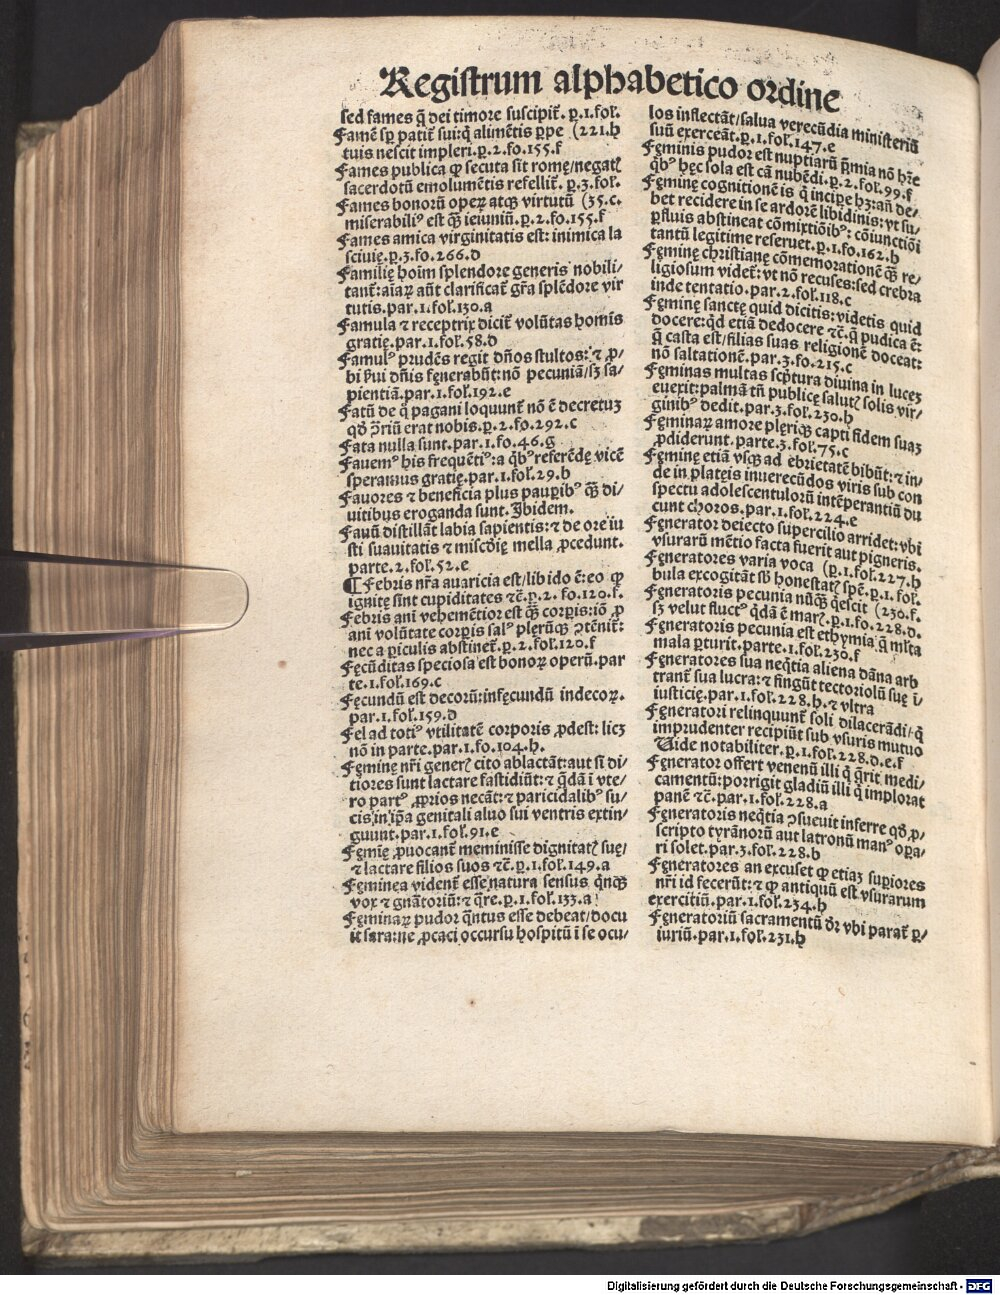 Registrum alphabetico ordine
sed fames q̄ dei timore suscipit̄. p.1.fol.
Famē sp patit̄ sui:q̇ alimētis ꝓpe (221.h
tuis nescit impleri.p.2.fo.155.f
Fames publica ꝙ secuta sit rome/negatꝭ
sacerdotū emolumētis refellit̄. p.3.fol.
Fames bonorū opeꝝ atqꝫ virtutū (35.c.
miserabiliꝰ est q̄ꝫ ieiuniū.p.2.fo.155.f
Fames amica virginitatis est: inimica la
sciuię.p.3.fo.266.d
Familię hoim splendore generis nobili/
tant̄:aīaꝝ aūt clarificat̄ gr̄a splēdore vir
tutis.par.1.fol.130.a
Famula ⁊ receptrix dicit̄ volūtas homis
gratię.par.1.fol.58.d
Famulꝰ prudēs regit dños stultos:⁊ ꝓ/
bi ẜui dñis fęnerabūt:nō pecuniā/sꝫ sa/
pientiā.par.1.fol.192.e
Fatū de q̇ pagani loquunt̄ nō ē decretuꝫ
qđ ꝯ̄riū erat nobis.p.2.fo.292.c
Fata nulla sunt.par.1.fo.46.g
Fauemꝰ his frequētiꝰ:a q̇bꝰ referēdę vicē
speramus gratię.par.1.fol.29.b
Fauores ⁊ beneficia plus paupibꝰ q̄ꝫ di/
uitibus eroganda sunt. Ibidem.
Fauū distillāt labia sapientis:⁊ de ore iu
sti suauitatis ⁊ misc̄dię mella ꝓcedunt.
parte.2.fol.52.e
¶ Febris nr̄a auaricia est/libido ē:eo ꝙ
ignitę sint cupiditates ⁊c̄.p.2. fo.120.f.
Febris ani vehemētior est q̄ꝫ corpis:iō ꝓ
ani volūtate corpis salꝰ plerūqꝫ ꝯtēnit̄:
nec a piculis abstinet̄.p.2.fol.120.f
Fęcūditas speciosa est bonoꝝ operū.par
te.1.fol.169.c
Fęcundū est decorū:infęcundū indecoꝝ.
par.1.fol.159.d
Fel ad totiꝰ vtilitatē corporis ꝓdest: licꝫ
nō in parte.par.1.fo.104.h.
Feminę nr̄i generꝭ cito ablactāt:aut si di
tiores sunt lactare fastidiūt:⁊ q̇dā i vte/
ro partꝰ ꝓprios necāt:⁊ paricidalibꝰ su/
cis in ip̄a genitali aluo sui ventris extin/
guunt.par.1.fol.91.e
Femię ꝓuocant̄ meminisse dignitatꝭ suę/
⁊ lactare filios suos ⁊c̄.p.1.fol.149.a
Feminea vident̄ esse natura sensus q̇nqꝫ
vox ⁊ gn̄atoriū:⁊ q̄re.p.1.fol.133.a
Feminaꝝ pudor q̄ntus esse debeat/docu
it sara:ne ꝓcaci occursu hospitū i se ocu/
los inflectāt/salua verecūdia ministeriū
suū exerceāt.p.1.fol.147.e
Feminis pudor est nuptiarū p̄mia nō hr̄e
q̇bꝰ hęc sola est cā nubēdi.p.2.fol.99.f
Feminę cognitionē is q̇ incipe hꝫ:añ de/
bet recidere in se ardorē libidinis:vt su/
pfluis abstineat cōmixtiōibꝰ: cōiunctiōi
tantū legitime reseruet.p.1.fo.162.h
Feminę christianę cōmemorationē q̄ꝫ re/
ligiosum videt̄:vt nō recuses:sed crebra
inde tentatio.par.2.fol.118.c
Feminę sanctę quid dicitis:videtis quid
docere:qđ etiā dedocere ⁊c̄.q̄ pudica ē:
q̄ casta est/filias suas religionē doceat:
nō saltationē.par.3.fo.215.c
Feminas multas scp̄tura diuina in luceꝫ
euexit:palmā tn̄ publicę salutꝭ solis vir/
ginibꝰ dedit.par.3.fol.230.h
Feminaꝝ amore pleriqꝫ capti fidem suaꝫ
ꝓdiderunt.parte.3.fol.75.c
Feminę etiā vsqꝫ ad ebrietatē bibūt:⁊ in/
de in plateis inuerecūdos viris sub con
spectu adolescentulorū intēperantiū du
cunt choros.par.1.fol.224.e
Fęnerator deiecto supercilio arridet:vbi
vsurarū mētio facta fuerit aut pigneris.
Fęneratores varia voca (p.1.fol.227.h
bula excogitāt sb̄ honestatꝭ spē.p.1.fol.
Fęneratoris pecunia nūq̄ꝫ q̇escit (230.f.
sꝫ velut fluctꝰ q̇dā ē marꝭ.p.1.fo.228.d.
Fęneratoris pecunia est ethymia q̄ ml̄ta
mala pturit.parte.1.fol.230.f
Fęneratores sua neq̇tia aliena dāna arb
trant̄ sua lucra:⁊ fingūt tectoriolū suę i/
iusticię.par.1.fol.228.h.⁊ vltra
Fęneratori relinquunt̄ soli dilacerādi/q̇
imprudenter recipiūt sub vsuris mutuo
Uide notabiliter.p.1.fol.228.d.e.f
Fęnerator offert venenū illi q̇ q̄rit medi/
camentū:porrigit gladiū illi q̇ implorat
panē ⁊c̄.par.1.fol.228.a
Fęneratoris neq̇tia ꝯsueuit inferre qđ ꝓ/
scripto tyrānorū aut latronū manꝰ opa/
ri solet.par.3.fol.228.b
Fęneratores an excuset ꝙ etiaꝫ supiores
nr̄i id fecerūt:⁊ ꝙ antiquū est vsurarum
exercitiū.par.1.fol.234.h
Fęneratoriū sacramentū dr̄ vbi parat̄ p/
iuriū.par.1.fol.231.h
Digitalisierung gefördert durch die Deutsche Forschungsgemeinschaft - DFG